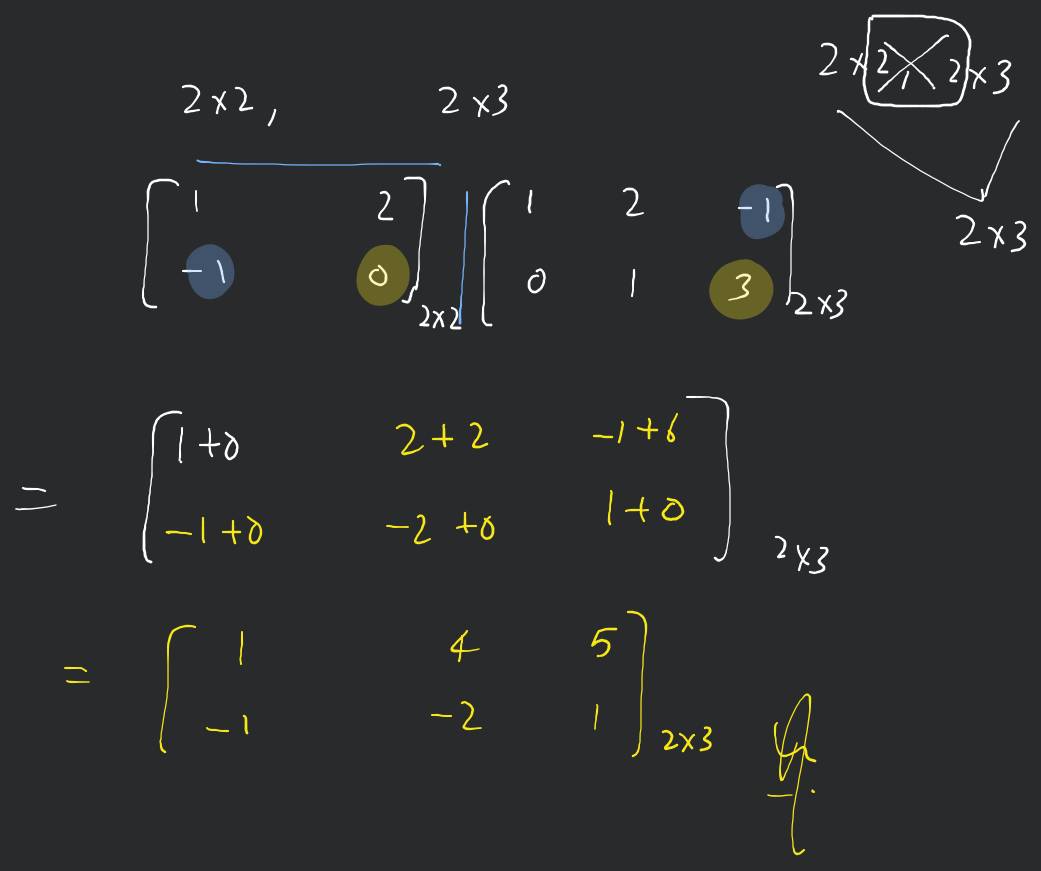 2×2, 2×3
2×2 2×3
2×3
[1 2 -1 0]2×2 [1 2 -1 0 1 3]2×3
= [1+0 2+2 -1+6
-1+0 -2+0 1+0]2×3
= [1 4 5
-1 -2 1]2×3